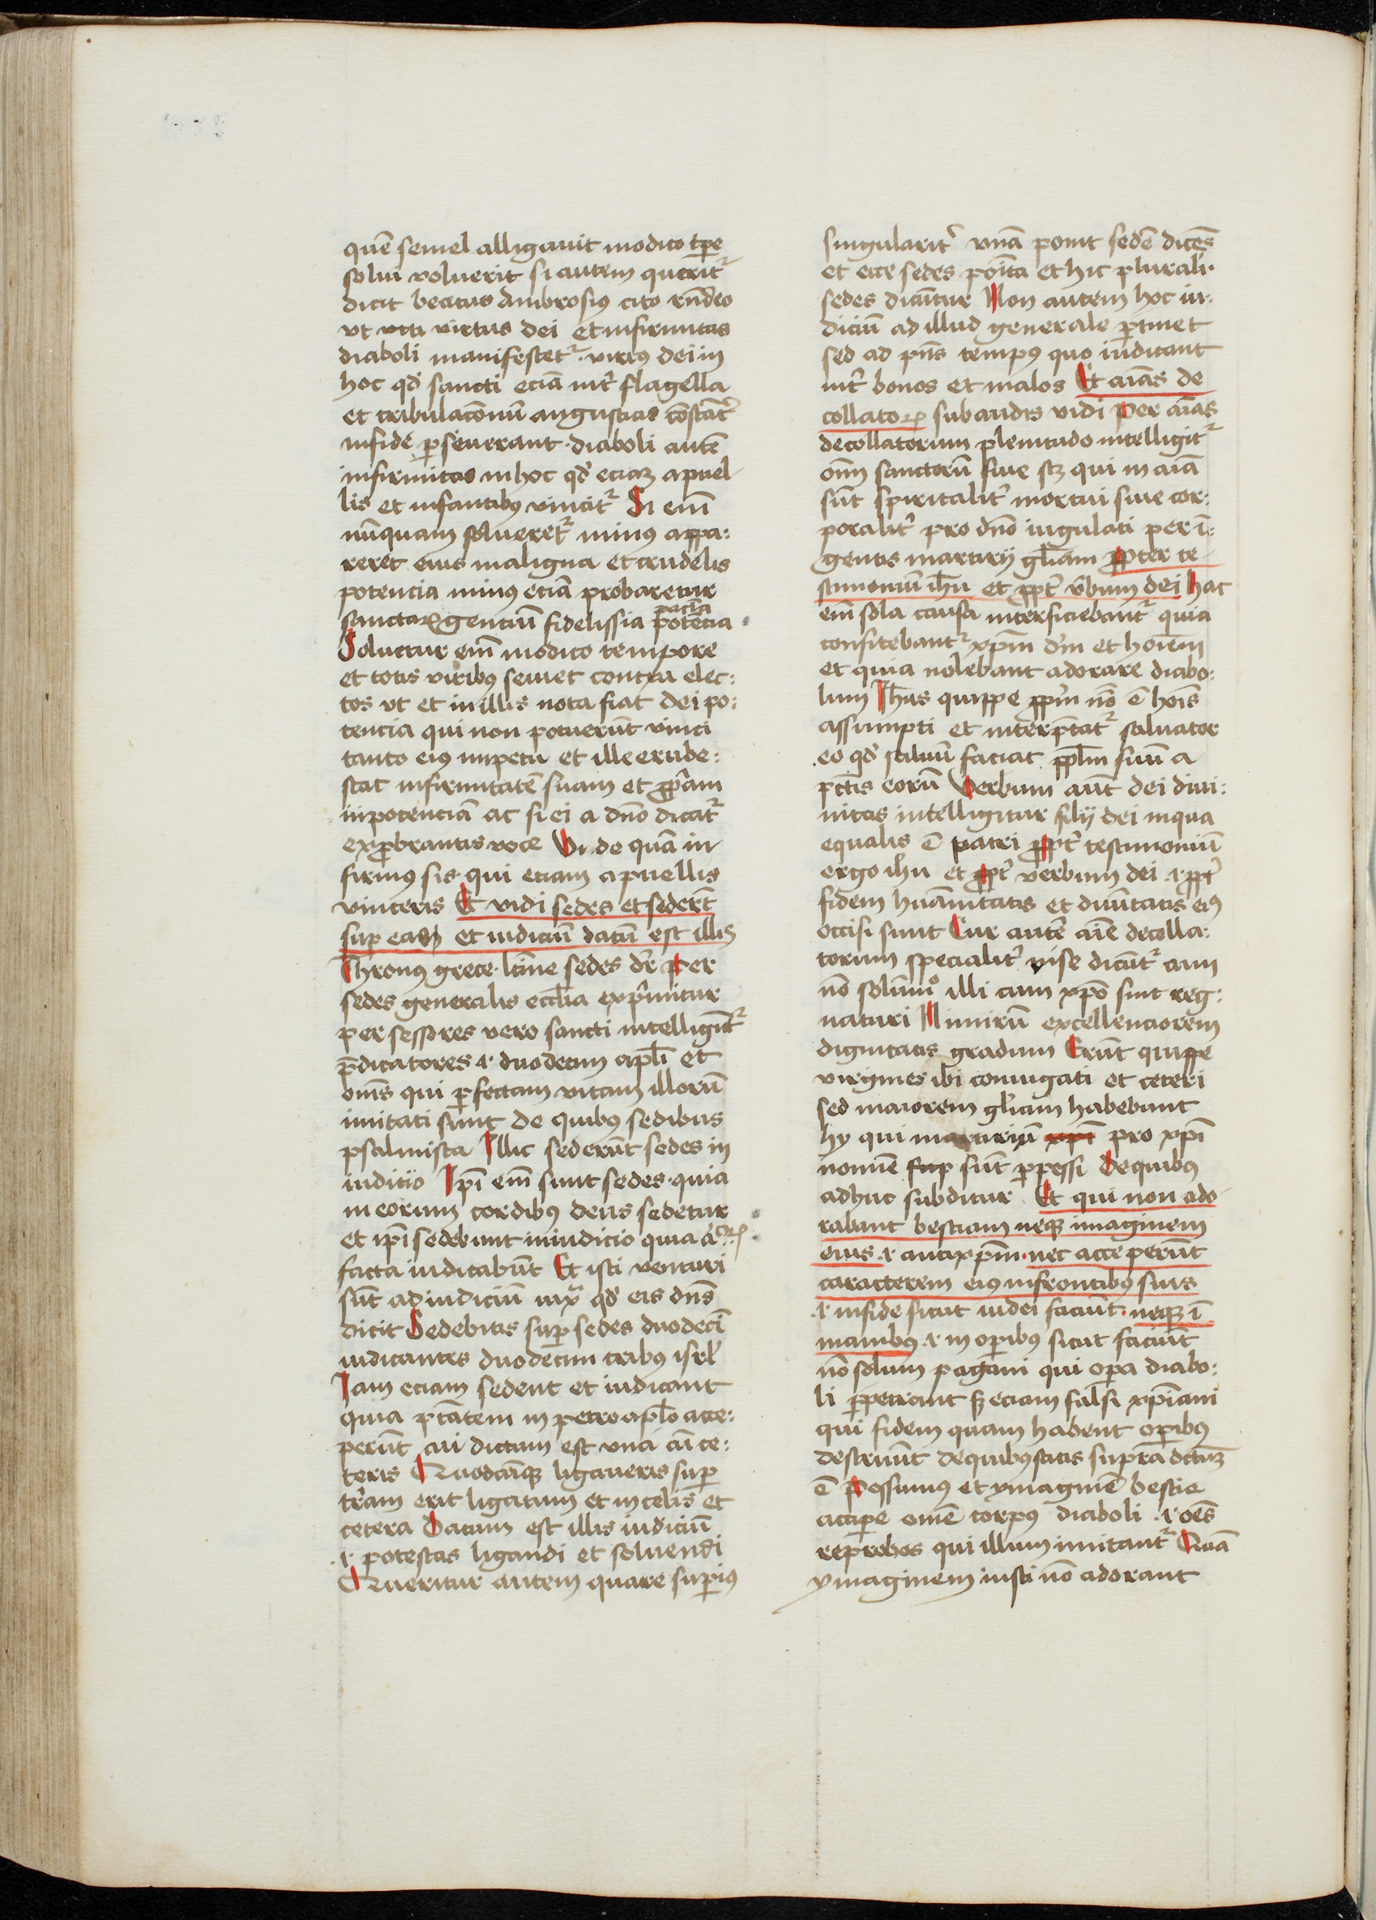 quē semel alligauit modico tp̄e
solui voluerit si autem querit᷑
dicit beatus Ambrosius cito rn̄deo
vt vtiꝫ virtus dei et infirmitas
diaboli manifestet᷑ · virtꝰ dei in
hoc qd̓ sancti eciā int̓ flagella
et tribulac̄onū angustias cōstāt̓
in fide p̲seuerant · diaboli autē
infirmitas in hoc qd̓ eciaꝫ a puel
lis et infantibꝰ vincit᷑ Si em̄
nūquam solueret᷑ minꝰ appa:
reret eius maligna et crudelis
potencia minꝰ eciā probaretur
sanctaꝝ gencium fidelissīa potēcia pacīa
Soluetur em̄ modico tempore
et totis viribꝰ seuiet contra elec:
tos vt et in illis nota fiat dei po:
tencia qui non potuerūt vinci
tanto eiꝰ impetu et ille erube:
scat infirmitatē suam et ꝓp̓am
inpotenciā ac si ei a dn̄o dicat᷑
exꝓbrantis voce Vide quā in
firmus sis · qui eciam a puellis
vinceris Et vidi sedes et sederūt
sup̲ eas et iudiciū datū est illis
Thronꝰ grece · latīe sedes dr̄ Per
sedes generalis eccl̄ia exp̓mitur
per sessores vero sancti intelligūt᷑
p̄dicatores ·i· duodecim apl̄i et
om̄s qui p̲fectam vitam illorū
imitati sunt de quibꝰ sedibus
psalmista Illic sederūt sedes in
iudicio Ip̄i em̄ sunt sedes · quia
in eorum cordibꝰ deus sedetur
et ip̄i sedebunt in iudicio quia
facta iudicabūt Et isti venturi
sūt ad iudiciū iuxᵃ qd̓ eis dn̄s
dicit Sedebitis sup̲ sedes duodecī
iudicantes duodecim tribꝰ isrl̄
Iam eciam sedent et iudicant
quia p̄tātem in petro apl̄o acce:
perūt cui dictum est vna cū ce:
teris Quodcūqꝫ ligaueris sup̲
t̓ram erit ligatum et in celis et
cetera Datum est illis iudiciū
·i· potestas ligandi et soluendi
Queritur autem quare sup̲iꝰ
singularit̓ vnā ponit sedē dicēs
et ecce sedes poīta et hic plurali·
sedes dicūtur Non autem hoc iu:
diciū ad illud generale p̲tinet
sed ad p̄ns tempꝰ quo iudicant
int̓ bonos et malos Et aīas de
collatoꝝ subaudis vidi Per aīas
decollatorum plenitudo intelligit᷑
om̄ sanctorū siue scꝫ qui in aīā
sūt spiritalit̓ mortui siue cor:
poralit̓ pro dn̄o iugulati per ī:
gentis martirij gl̄iam Propter te
stimoniū ih̄u et ꝓpt̓ v̓bum dei Hac
em̄ sola causa interficiebant᷑ quia
confitebant᷑ xp̄m dm̄ et hoīem
et quia nolebant adorare diabo:
lum Ih̄us quippe ꝓp̓m nō ē hoīs
assumpti et interp̄tat᷑ saluator
eo qd̓ saluū faciat ppl̄m suū a
pc̄tis eorū Verbum aūt dei diui:
nitas intelligitur filij dei in qua
equalis ē patri ꝓpt̓ testimoniū
ergo ih̄u et ꝓpt̓ verbum dei ·i· ꝓpt̓
fidem hūanitatis et diuītatis eiꝰ
occisi sunt Cur autē aīe decolla:
torum specialit̓ vise dicūt᷑ cum
nō solūmᵒ illi cum xp̄o sint reg:
naturi Nimirū excellenciorem
dignitatis gradum Erūt quippe
virgines ibi coniugati et ceteri
sed maiorem gl̓iam habebunt
hy qui martiriū xp̄i pro xp̄i
nomīe sup sūt p̲pessi De quibꝰ
adhuc subditur Et qui non ado
rabant bestiam neqꝫ imaginem
eius ·i· antixp̄m · nec acceperūt
caracterem eiꝰ in frontibꝰ suis
·i· in fide sicut iudei faciūt · neqꝫ ī
manibꝰ ·i· in op̲ibꝰ sicut faciūt
nō solum pagani qui op̲a diabo:
li p̲petrant sꝫ eciam falsi xp̄iani
qui fidem quam habent op̲ibꝰ
destruūt de quibꝰ satis supra dictūꝫ
ē Possumꝰ et ymaginē bestie
accip̲e omē corpꝰ diaboli ·i· oēs
reprobos qui illum imitant᷑ Quā
ymaginem iusti nō adorant